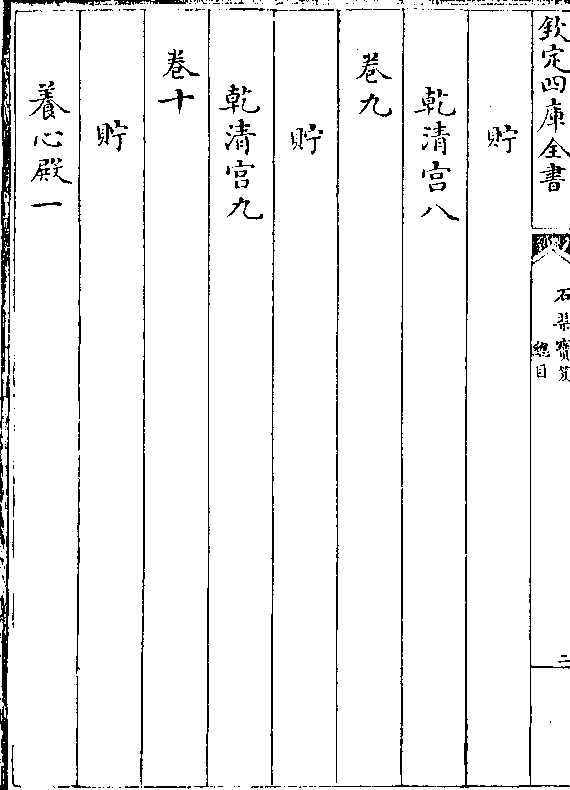 欽定四庫全書
石渠寶笈
總目
二
貯
乾清宮八
卷九
貯
乾清宮九
卷十
貯
養心殿一